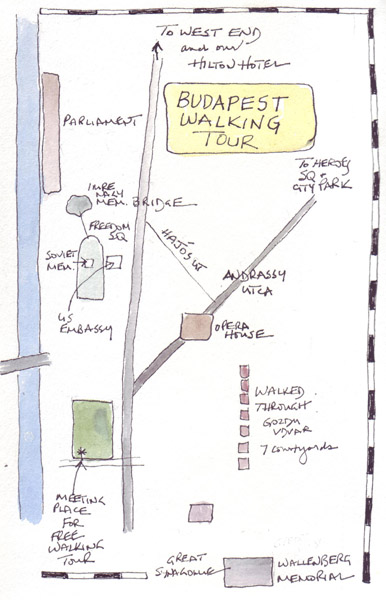 TO WEST END
and our
HILTON HOTEL
BUDAPEST
WALKING
TOUR
PARLIAMENT
TO HEROES
SQ +
CITY PARK
IMRE
NAGY
MEM. BRIDGE
FREEDOM
SQ
HAJÓS UT
SOVIET
MEM.
US
EMBASSY
ANDRASSY
UTCA
OPERA
HOUSE
WALKED
THROUGH
GOZDU
UDVAR
7 courtyards
MEETING
PLACE
FOR
FREE
WALKING
TOUR
GREAT
SYNAGOGUE
WALLENBERG
MEMORIAL